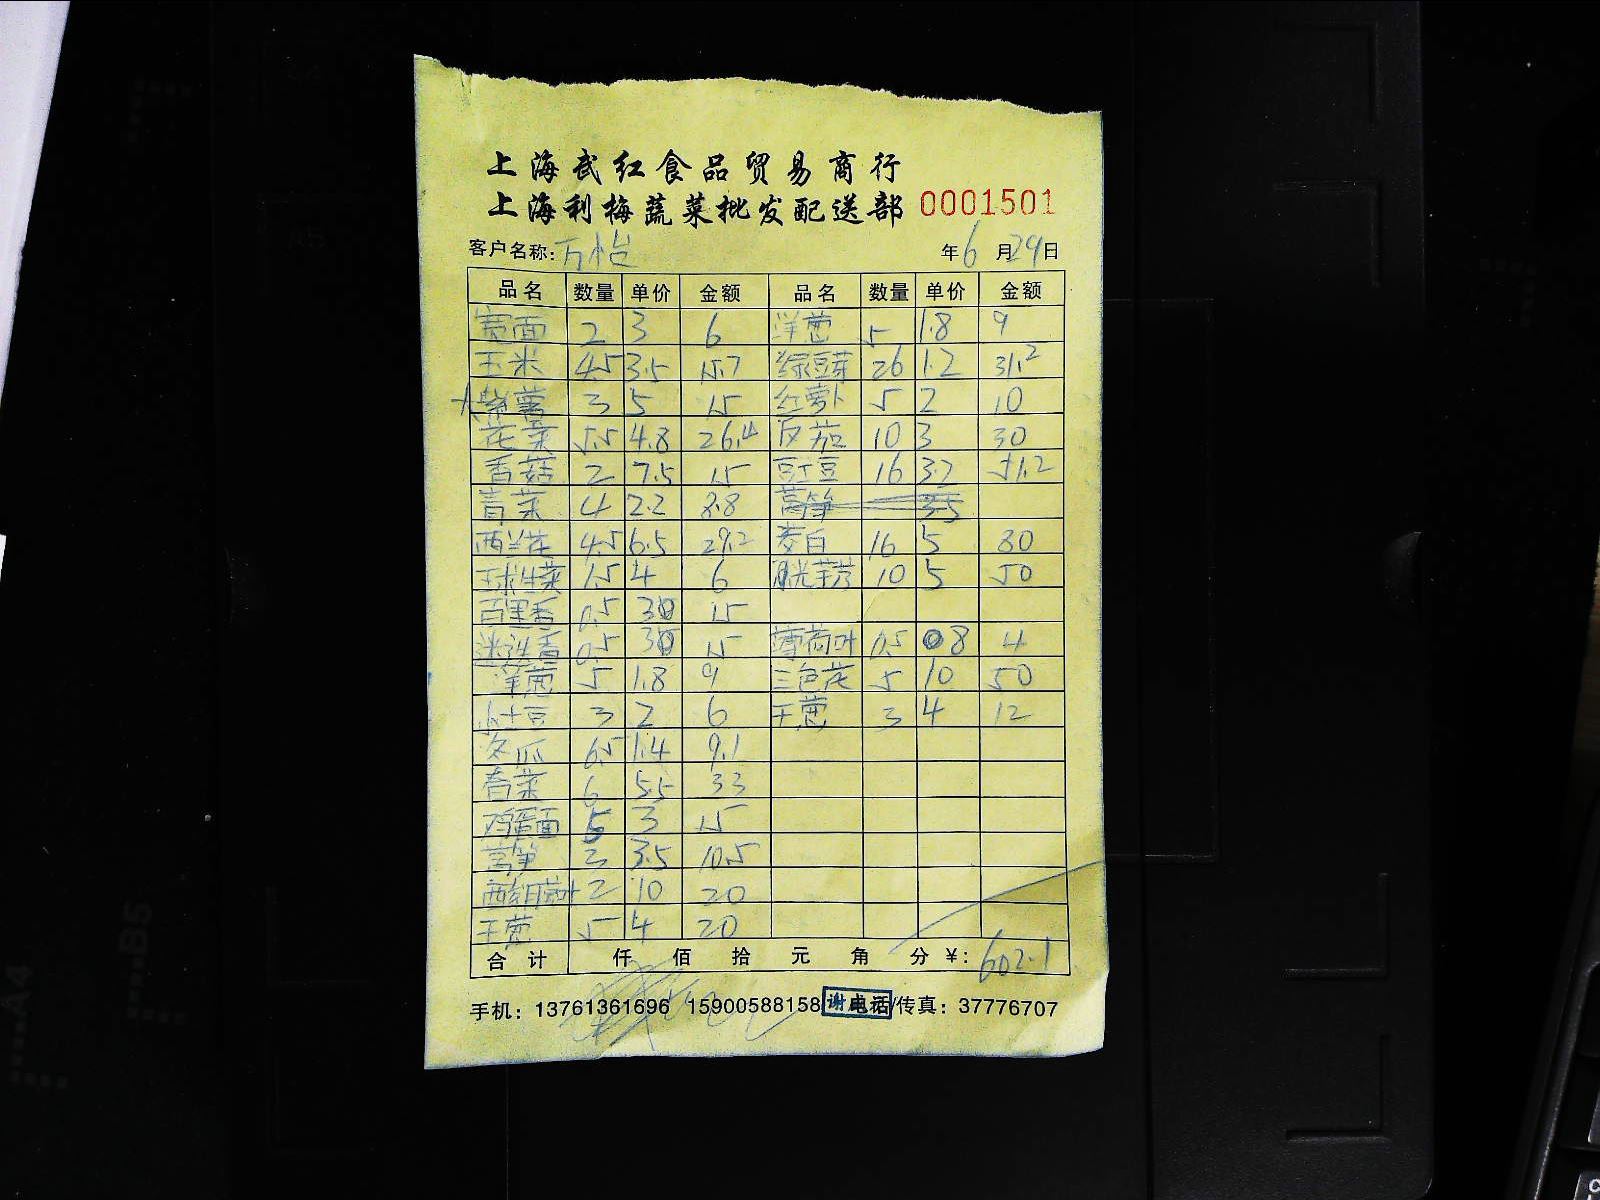 上海武红食品贸易商行
上海利梅蔬菜批发配送部 0001501
客户名称:万怡 年6月29日
品名 数量 单价 金额 品名 数量 单价 金额
宽面 2 3 6 洋葱 5 1.8 9
玉米 4.5 3.5 15.7 绿豆芽 26 1.2 31.2
大紫薯 3 5 15 红萝卜 5 2 10
花菜 5.5 4.8 26.4 反茄 10 3 30
香菇 2 7.5 15 豇豆 16 3.2 51.2
青菜 4 2.2 8.8 莴笋 3.5
西兰花 4.5 6.5 29.2 茭白 16 5 80
玉球生菜 1.5 4 6 芋艿 10 5 50
百里香 0.5 30 15
迷迭香 0.5 30 15 薄荷叶 0.5 8 4
洋葱 5 1.8 9 三色花 5 10 50
小土豆 3 2 6 干葱 3 4 12
冬瓜 6.5 1.4 9.1
香菜 6 5.5 33
鸡蛋面 5 3 15
莴笋 3 3.5 10.5
2 10 20
干葱 5 4 20
合计 仟 佰 拾 元 角 分 ¥: 602.1
手机: 13761361696 15900588158 电话/传真: 37776707